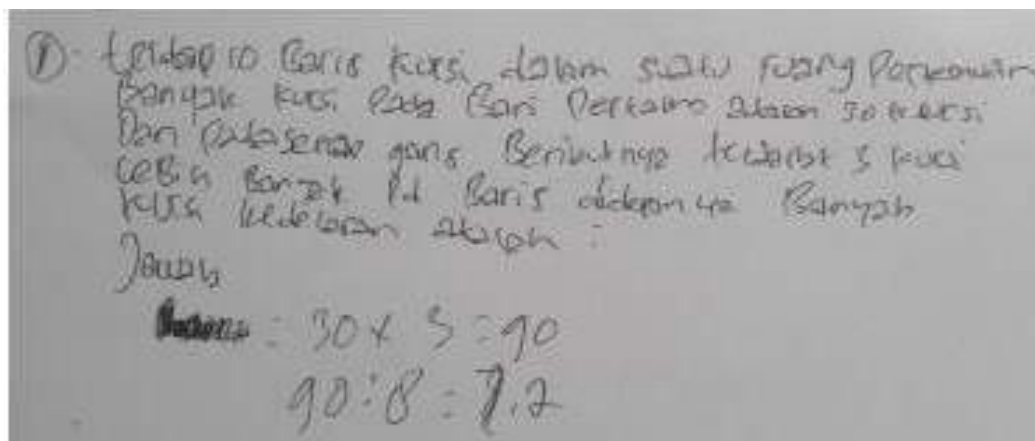 ① terdap 10 Baris kursi dalam suatu ruang Pertemuan
Banyak kursi Pada Bari Pertama adalah 30 kursi
Dan Pada semap garis Berikutnya terdapat 3 kursi
LeBih Banyak Pd Baris didepannya Banyak
kursi kedelapan adalah :
Jawab
= 30 x 3 = 90
90 : 8 = 7.2